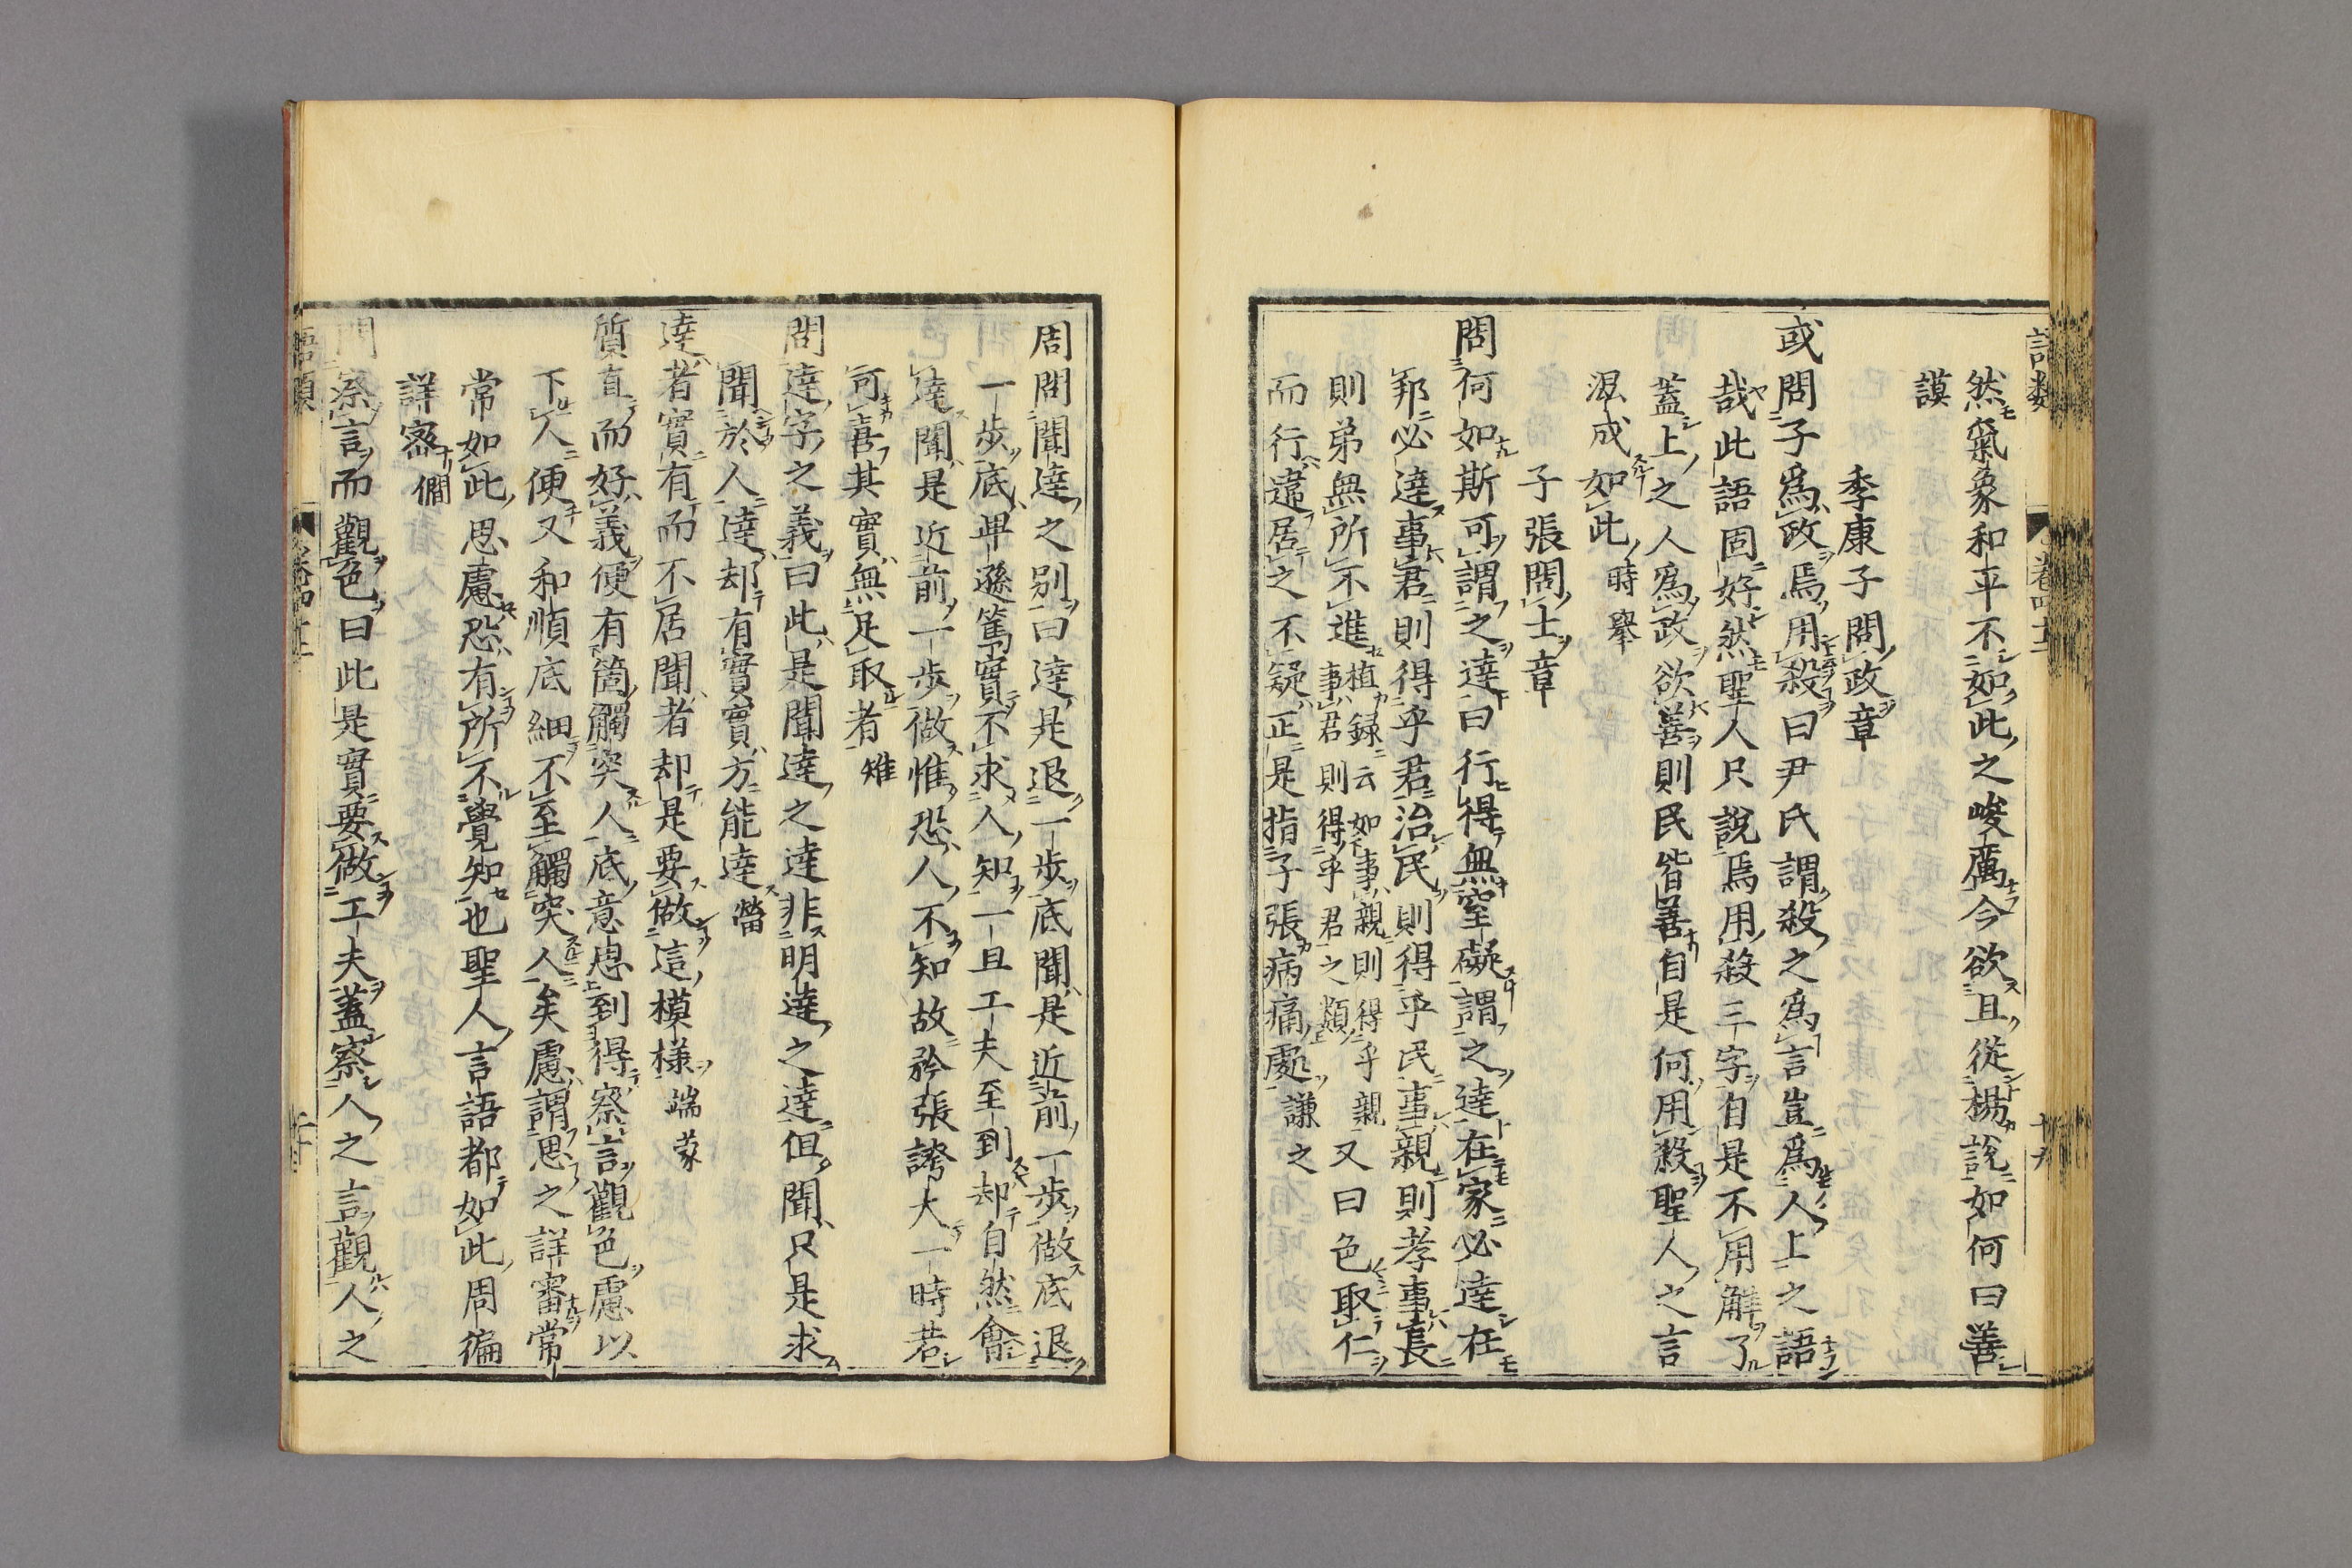 然氣象和平不如此之峻厲今欲且從楊說如何曰善
謨
季康子問政章
或問子爲政焉用殺曰尹氏謂殺之爲言豈爲人上之語
哉此語固好然聖人只說焉用殺三字自是不用解了
蓋上之人爲政欲善則民皆善自是何用殺聖人之言
混成如此時舉
子張問士章
問何如斯可謂之達曰行得無窒礙謂之達在家必達在
邦必達事君則得乎君治民則得乎民事親則孝事長
則弟無所不進植録云如事親則得乎親
事君則得乎君之類又曰色取仁
而行違居之不疑正是指子張病痛處謙之
周問聞達之別曰達是退一步底聞是近前一步做底退
一步底卑遜篤實不求人知一旦工夫至到却自然會
達聞是近前一步做惟恐人不知故矜張誇大一時若
可喜其實無足取者雉
問達字之義曰此是聞達之達非明達之達但聞只是求
聞於人達却有實實方能達㽦
達者實有而不居聞者却是要做這模樣端蒙
質直而好義便有箇觸突人底意思到得察言觀色慮以
下人便又和順底細不至觸突人矣慮謂思之詳審常
常如此思慮恐有所不覺知也聖人言語都如此周徧
詳密僩
問察言而觀色曰此是實要做工夫蓋察人之言觀人之